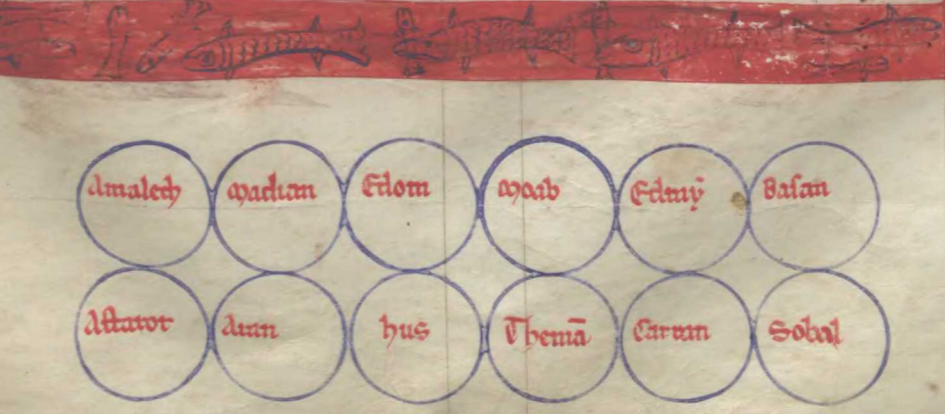 Amalech Madian Edom Moab Edmȳ Basan
Astarot Aran hus Themā Carran Sobal